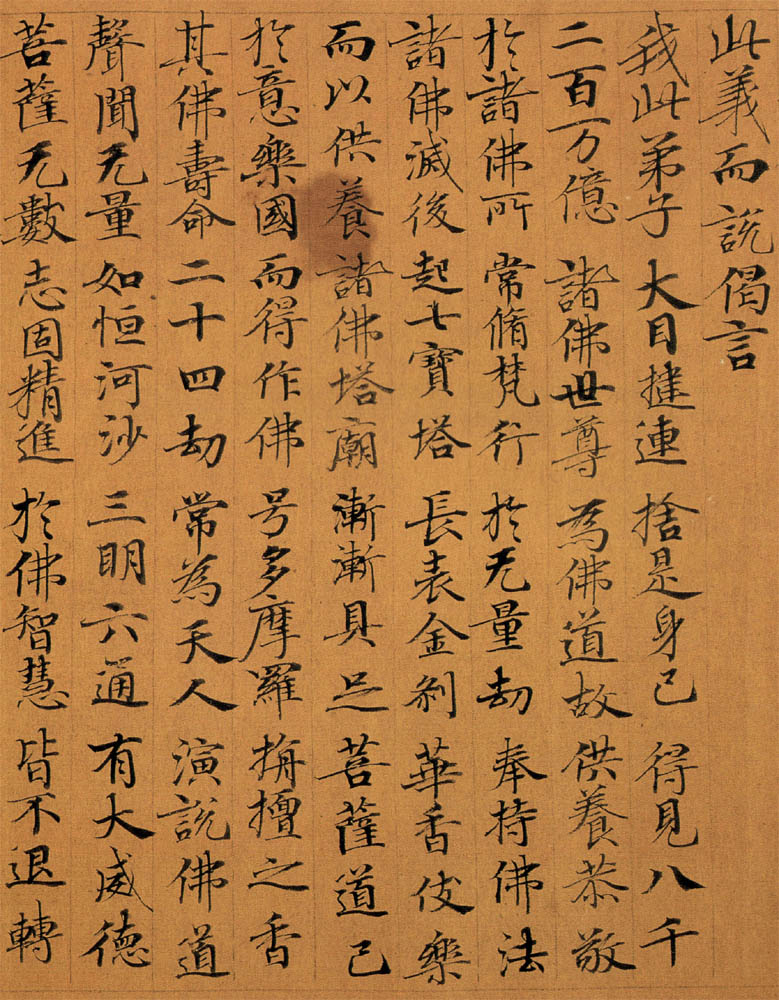 此義而說偈言
我此弟子 大目揵連 捨是身已 得見八千
二百万億 諸佛世尊 為佛道故 供養恭敬
於諸佛所 常脩梵行 於无量劫 奉持佛法
諸佛滅後 起七寶塔 長表金剎 華香伎樂
而以供養 諸佛塔廟 漸漸具足 菩薩道已
於意樂國 而得作佛 号多摩羅 栴檀之香
其佛壽命 二十四劫 常為天人 演說佛道
聲聞无量 如恒河沙 三明六通 有大威德
菩薩无數 志固精進 於佛智慧 皆不退轉